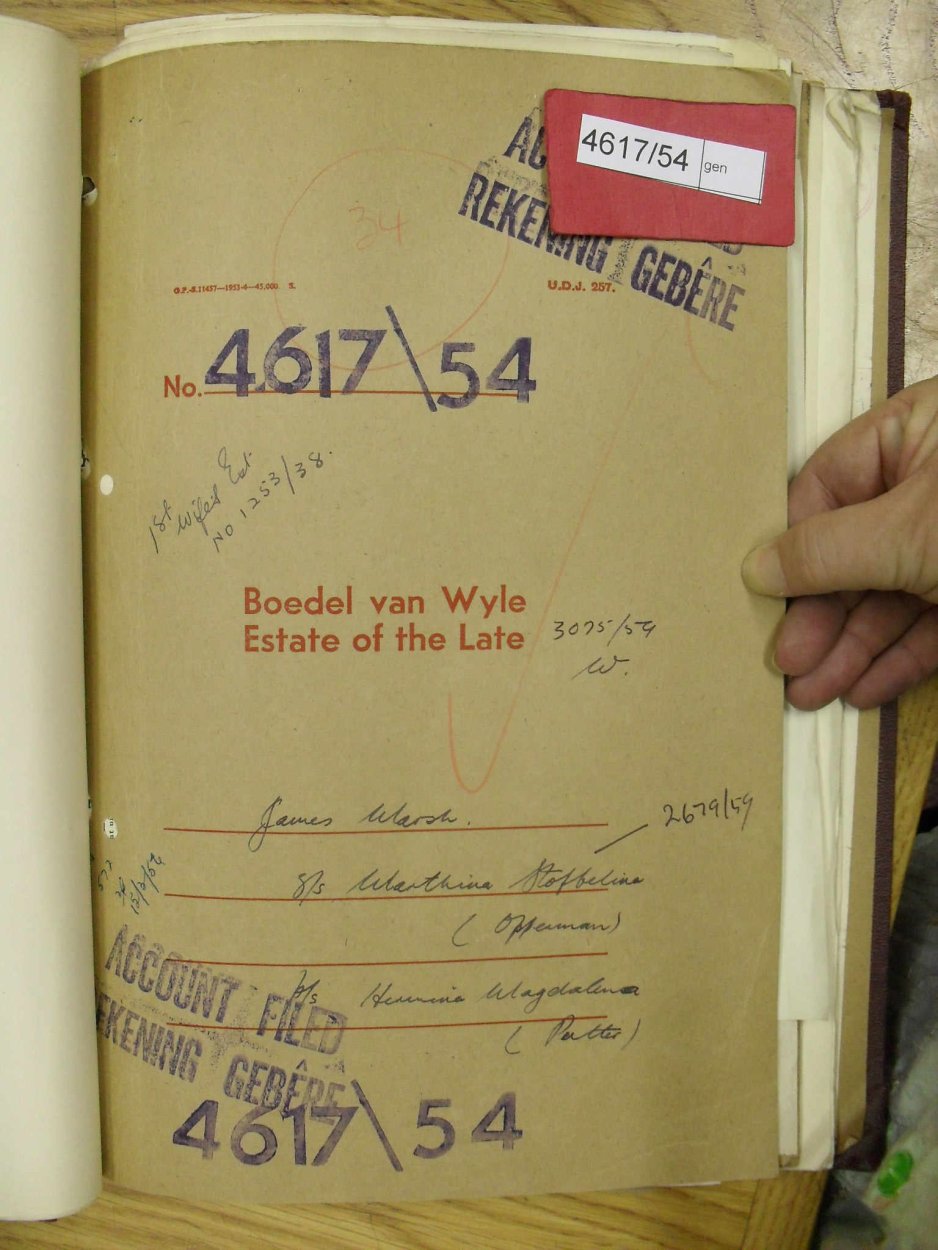 4617/54 gen
AC
REKENING GEBÊRE
34
G.P.-S.11457—1953-4—45,000. S.
U.D.J. 257.
No. 4617\54
1st Wife's Est
No 1253/38.
Boedel van Wyle
Estate of the Late
3075/54
W.
James Marsh.
2679/54
s/s Marthina Stoffelina
(Opperman)
Magdalena
ACCOUNT FILED
REKENING GEBÊRE
4617\54